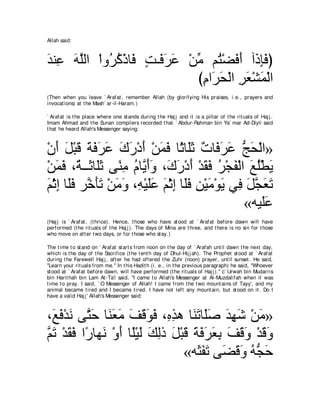 Allah said:
﴿فَإِذَآ أَفَضْتُم مِّنْ عَرَفَـتٍ فَاذْكُرُواْ اللَّهَ عِندَ
الْمَشْعَرِ الْحَرَامِ﴾
(Then when you leave `Arafat, remember Allah (by glorifying His praises, i.e., prayers and
invocations) at the Mash`ar-il-Haram.)
`Arafat is the place where one stands during the Hajj and it is a pillar of the rituals of Hajj.
Imam Ahmad and the Sunan compilers recorded that `Abdur-Rahman bin Ya`mar Ad-Diyli said
that he heard Allah's Messenger saying:
«الْحَجُّ عَرَفَاتٌ ثَلَاثًا فَمَنْ أَدْرَكَ عَرَفَةَ قَبْلَ أَنْ
يَطْلُعَ الْفَجْرُ فَقَدْ أَدْرَكَ، وَأَيَّامُ مِنىً ثَلَاثَــةٌ، فَمَنْ
تَعَجَّلَ فِي يَوْمَيْنِ فَلَا إِثْمَ عَلَيْهِ، وَمَنْ تَأَخَّرَ فَلَا إِثْمَ
عَلَيْه»
(Hajj is `Arafat, (thrice). Hence, those who have stood at `Arafat before dawn will have
performed (the rituals of the Hajj). The days of Mina are three, and there is no sin for those
who move on after two days, or for those who stay.)
The time to stand on `Arafat starts from noon on the day of `Arafah until dawn the next day,
which is the day of the Sacrifice (the tenth day of Dhul-Hijjah). The Prophet stood at `Arafat
during the Farewell Hajj, after he had offered the Zuhr (noon) prayer, until sunset. He said,
"Learn your rituals from me." In this Hadith (i.e., in the previous paragraph) he said, "Whoever
stood at `Arafat before dawn, will have performed (the rituals of Hajj)." (`Urwah bin Mudarris
bin Harithah bin Lam At-Ta'i said, "I came to Allah's Messenger at Al-Muzdalifah when it was
time to pray. I said, `O Messenger of Allah! I came from the two mountains of Tayy', and my
animal became tired and I became tired. I have not left any mountain, but stood on it. Do I
have a valid Hajj' Allah's Messenger said:
«مَنْ شَهِدَ صَلَاتَنَا هذِهِ، فَوَقَفَ مَعَنَا حَتَّى نَدْفَعَ،
وَقَدْ وَقَفَ بِعَرَفَةَ قَبْلَ ذلِكَ لَيْلًا أَوْ نَهَارًا، فَقَدْ تَمَّ
حَجُّهُ وَقَضَى تَفَثَه»